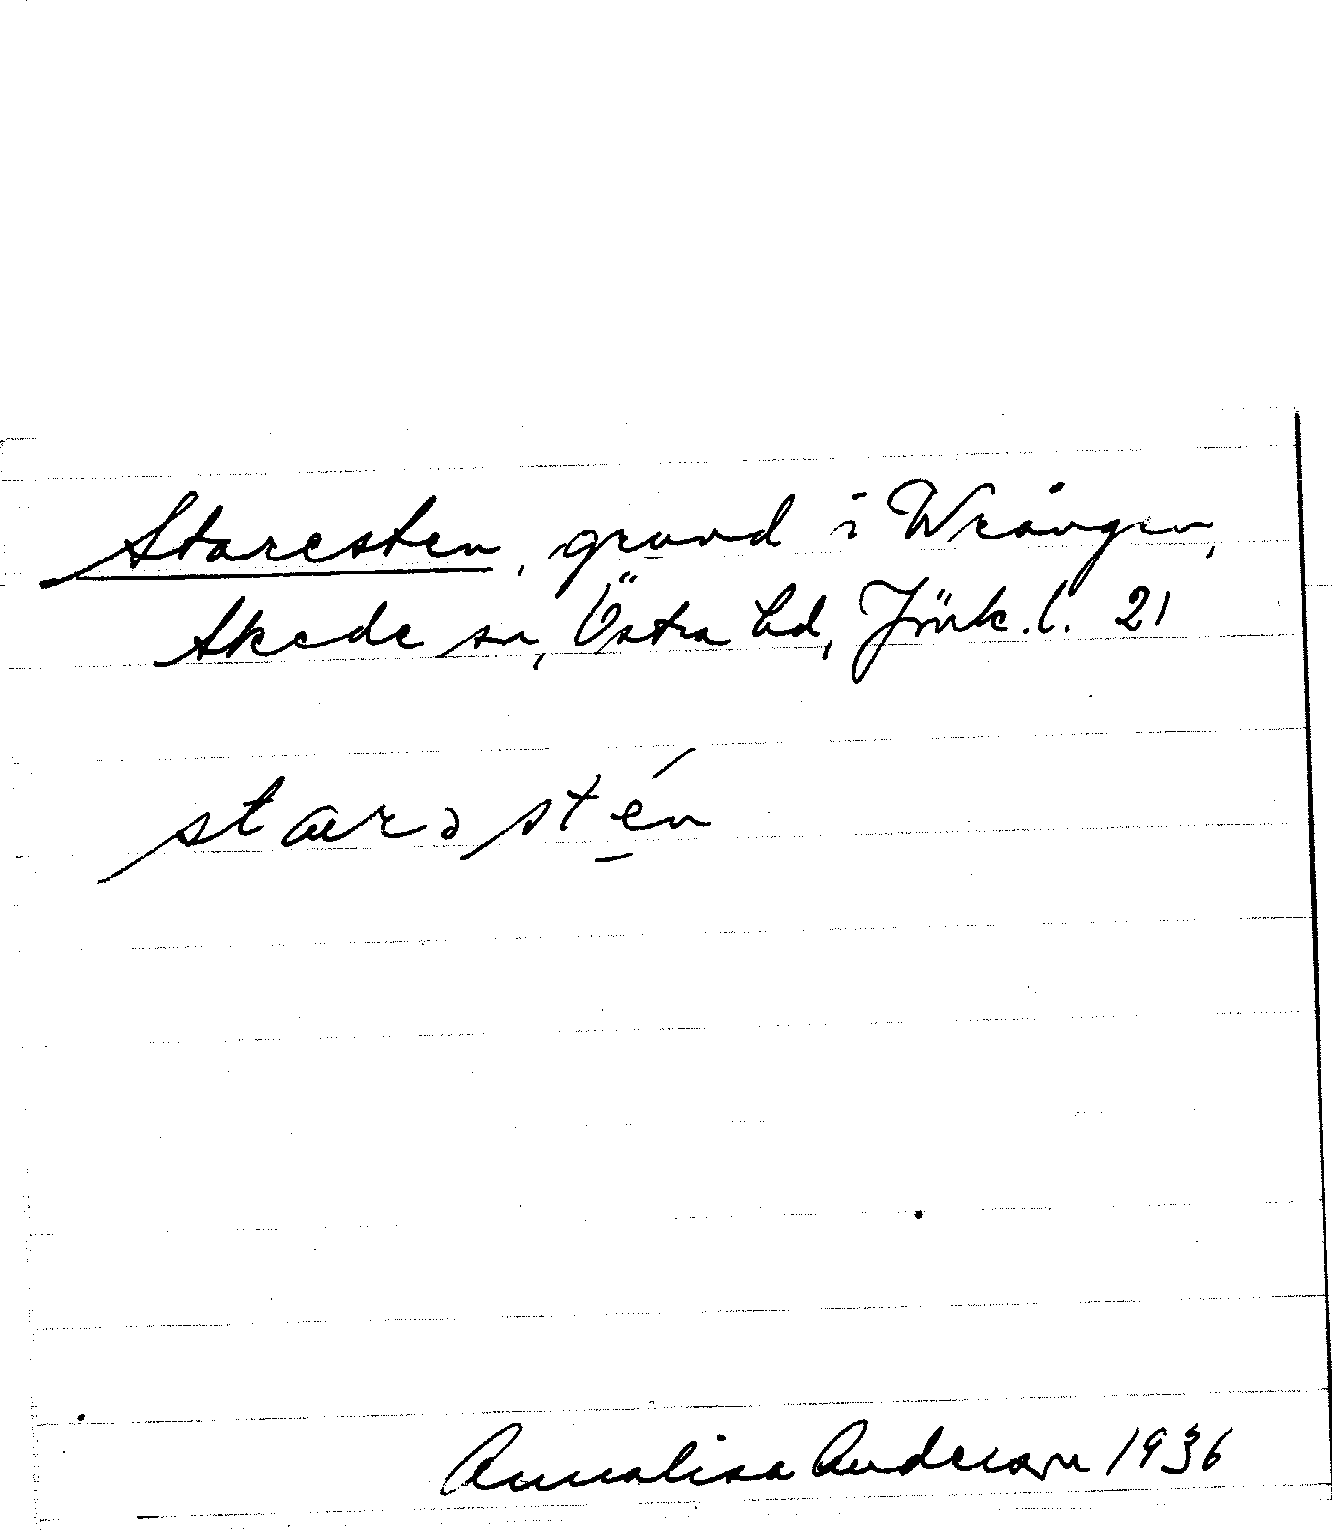 Staresten, grund i Wrången,
Skede sn, Östra hd, Jönk. l. 21
starə stén
Annalisa Anderson 1936